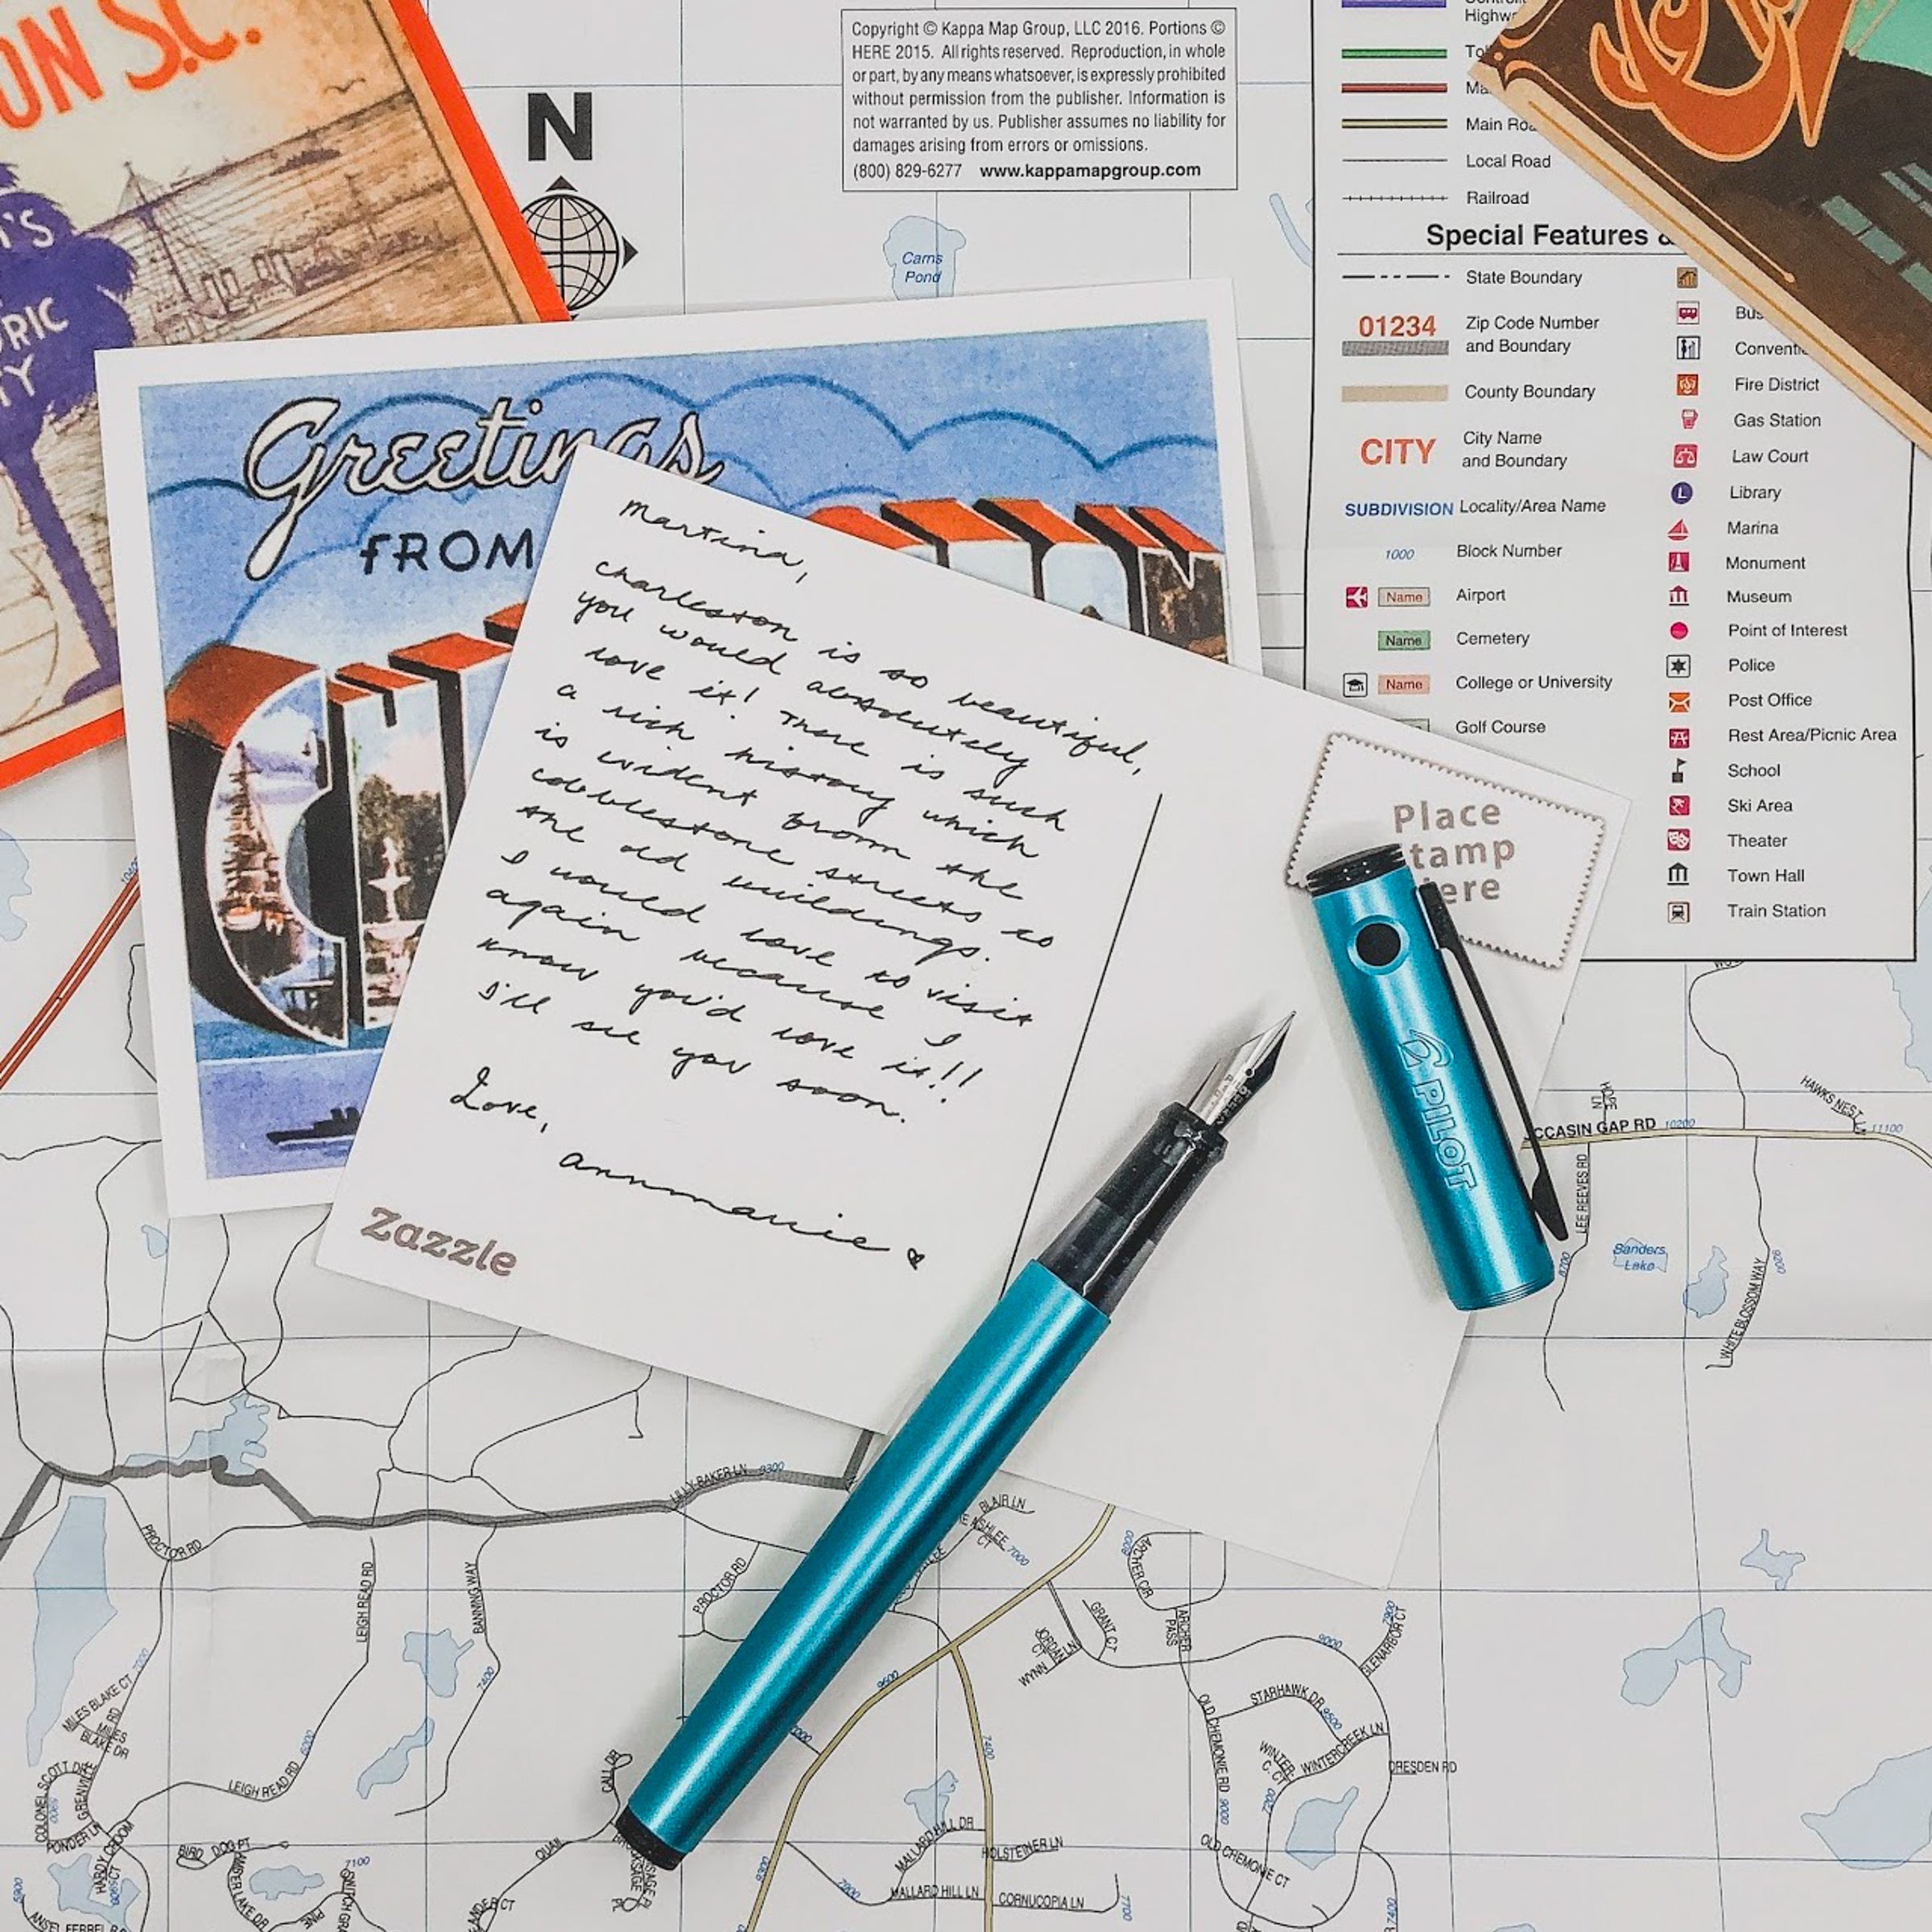 ON S.C.
'S
RIC
TY
N
Copyright © Kappa Map Group, LLC 2016. Portions ©
HERE 2015. All rights reserved. Reproduction, in whole
or part, by any means whatsoever, is expressly prohibited
without permission from the publisher. Information is
not warranted by us. Publisher assumes no liability for
damages arising from errors or omissions.
(800) 829-6277 www.kappamapgroup.com
Carns
Pond
Main Roa
Local Road
Railroad
Special Features &
State Boundary
01234 Zip Code Number
and Boundary
County Boundary
CITY City Name
and Boundary
SUBDIVISION Locality/Area Name
1000 Block Number
Name Airport
Name Cemetery
Name College or University
Golf Course
Bus
Conventi
Fire District
Gas Station
Law Court
L Library
Marina
Monument
Museum
Point of Interest
Police
Post Office
Rest Area/Picnic Area
School
Ski Area
Theater
Town Hall
Train Station
Greetings
FROM
Martina,
Charleston is so beautiful,
you would absolutely
love it! There is such
a rich history which
is evident from the
cobblestone streets to
the old buildings.
I would love to visit
again because I
know you'd love it!!
I'll see you soon.
Love,
Annmarie
Zazzle
Place
tamp
ere
PILOT
CCASIN GAP RD 10200
HAWKS NEST
11100
HOPE
LN
LEE REEVES RD
8700
Sanders
Lake
WHITE BLOSSOM WAY
9200
LILLY BAKER LN 9300
PROCTOR RD
LEIGH READ RD
BANNING WAY
7400
PROCTOR RD
BLAIR LN
ASHLEE
CT
7000
8000
ARCHER CIR
ARCHER
PASS
GRANT CT
JORDAN LN
WYNN CT
9000
7900
GLENARBOR CT
OLD CHEMONIE RD 9000
STARHAWK DR 9500
WINTERCREEK LN
WINTER
C. CT
7200
DRESDEN RD
OLD CHEMONIE CT
7400
MILES BLAKE CT 7000
MILES
BLAKE DR
RD
COLONEL SCOTT DR
GRENVILLE
PONDER LN
HARDY CROOM
LEIGH READ RD 6000
BIRD DOG PT
AMBER LAKE DR
7100
CALL DR
QUAIL
9500
7400
MALLARD HILL DR
HOLSTEINER LN
MALLARD HILL LN
CORNUCOPIA LN
7700
7900
8300
5900
PINE
ANSEL FERRELL R